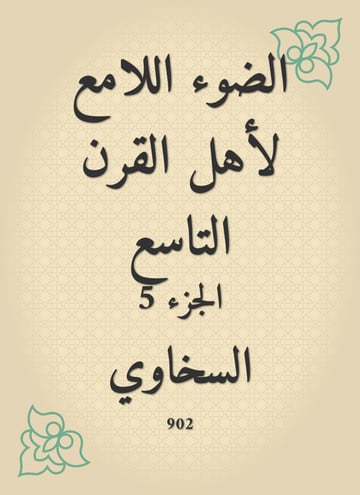 الضوء اللامع
لأهل القرن
التاسع
الجزء 5
السخاوي
902